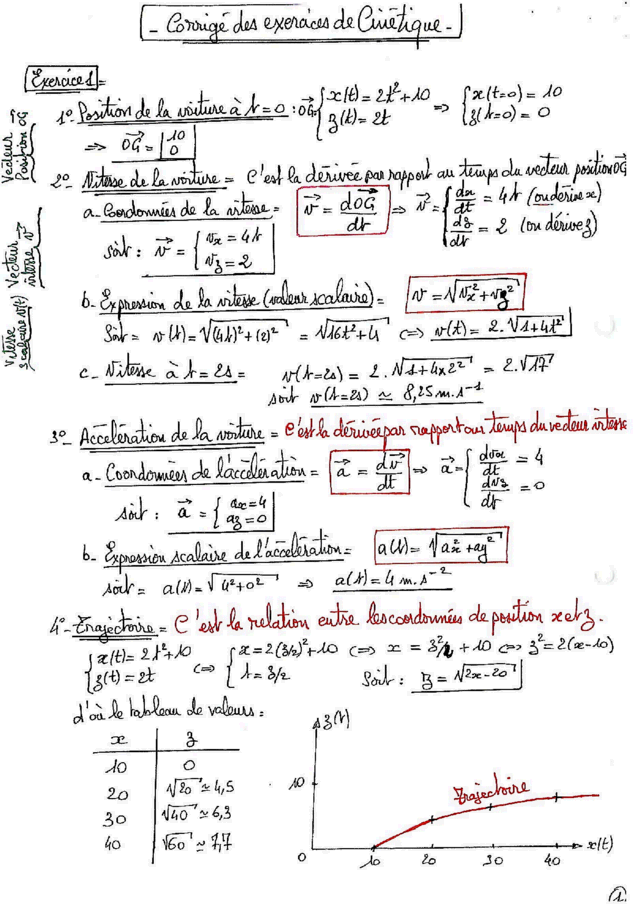 - Corrigé des exercices de Cinétique -
Exercice 1 =
1°- Position de la voiture à t=0 : OG→ { x(t) = 2t²+10 ; z(t) = 2t ⇒ { x(t=0) = 10 ; z(t=0) = 0
⇒ OG→ = | 10 ; 0
Vecteur Position OG→
2°- Vitesse de la voiture = C'est la dérivée par rapport au temps du vecteur position OG→
a- Coordonnées de la vitesse = v→ = dOG→/dt ⇒ v→ = { dx/dt = 4t (on dérive x) ; dz/dt = 2 (on dérive z)
Soit : v→ = { vx = 4t ; vz = 2
Vecteur vitesse v→
b- Expression de la vitesse (valeur scalaire) = v = √(vx² + vz²)
Soit = v(t) = √((4t)² + (2)²) = √(16t²+4) ⇔ v(t) = 2.√(1+4t²)
Vitesse scalaire v(t)
c- Vitesse à t=2s = v(t=2s) = 2.√(1+4×2²) = 2.√17
soit v(t=2s) ≃ 8,25 m.s⁻¹
3°- Accélération de la voiture = C'est la dérivée par rapport au temps du vecteur vitesse
a- Coordonnées de l'accélération = a→ = dv→/dt ⇒ a→ = { dvx/dt = 4 ; dvz/dt = 0
soit : a→ = { ax=4 ; az=0
b- Expression scalaire de l'accélération = a(t) = √(ax² + ay²)
soit = a(t) = √(4²+0²) ⇒ a(t) = 4 m.s⁻²
4°- Trajectoire = C'est la relation entre les coordonnées de position x et z.
{ x(t) = 2t²+10 ; z(t) = 2t ⇔ { x = 2(z/2)²+10 ; t = z/2 ⇔ x = z²/2 + 10 ⇔ z² = 2(x-10)
Soit : z = √(2x-20)
d'où le tableau de valeurs :
x | z
10 | 0
20 | √20 ≃ 4,5
30 | √40 ≃ 6,3
40 | √60 ≃ 7,7
z(t)
10
Trajectoire
0 10 20 30 40 x(t)
1